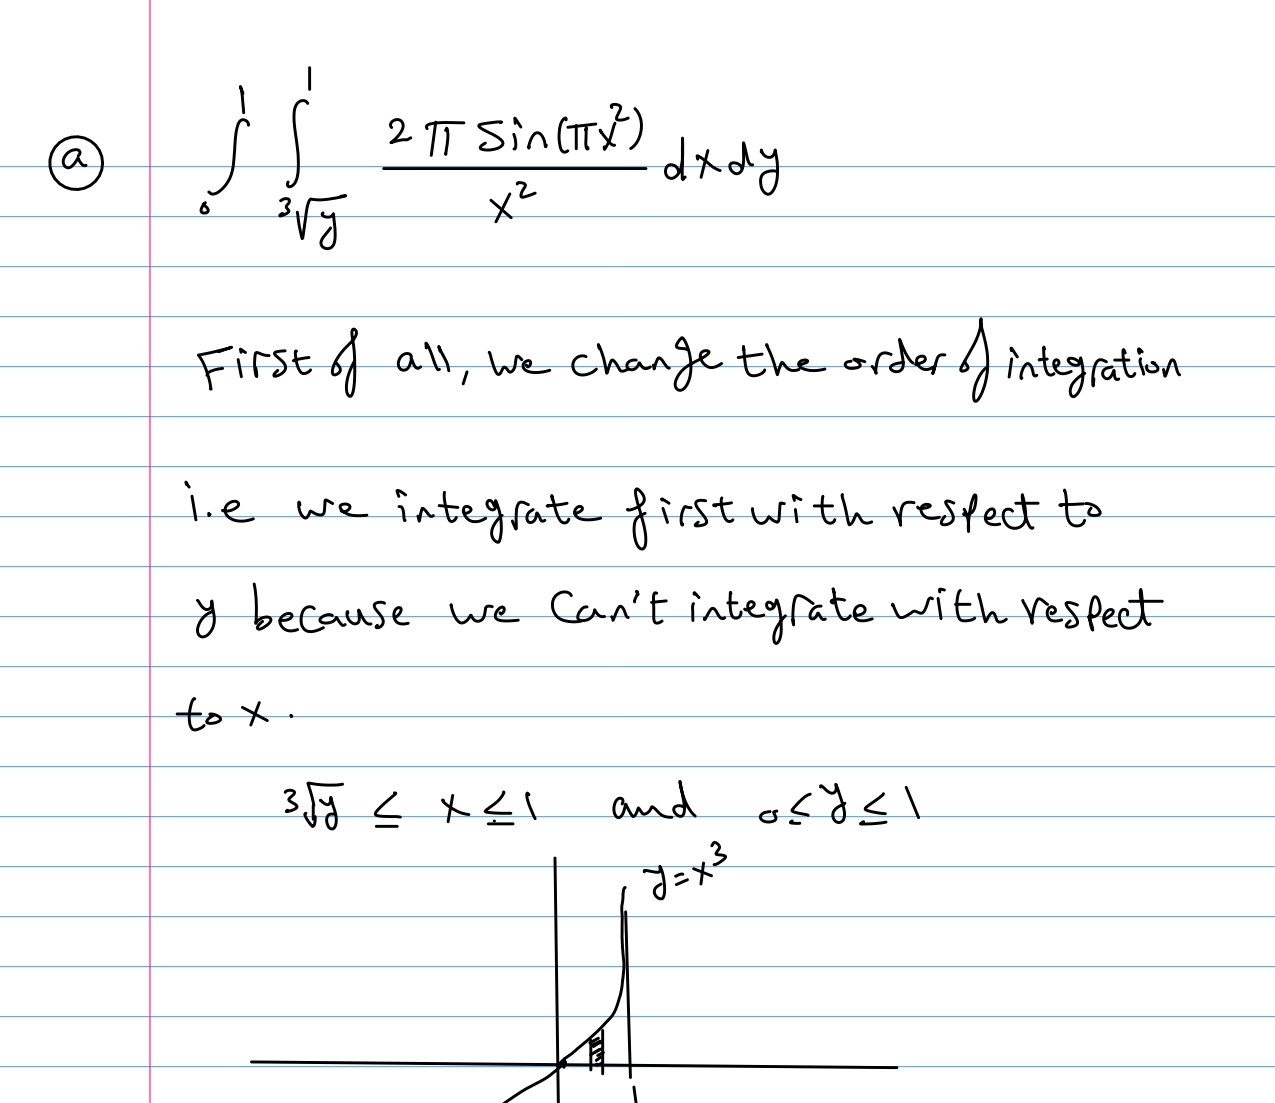 (a) ∫₀¹ ∫_∛y^1 2π Sin(πx²) / x² dx dy
First of all, we change the order of integration
i.e we integrate first with respect to
y because we Can't integrate with respect
to x.
∛y ≤ x ≤ 1 and 0 ≤ y ≤ 1
y = x³
1